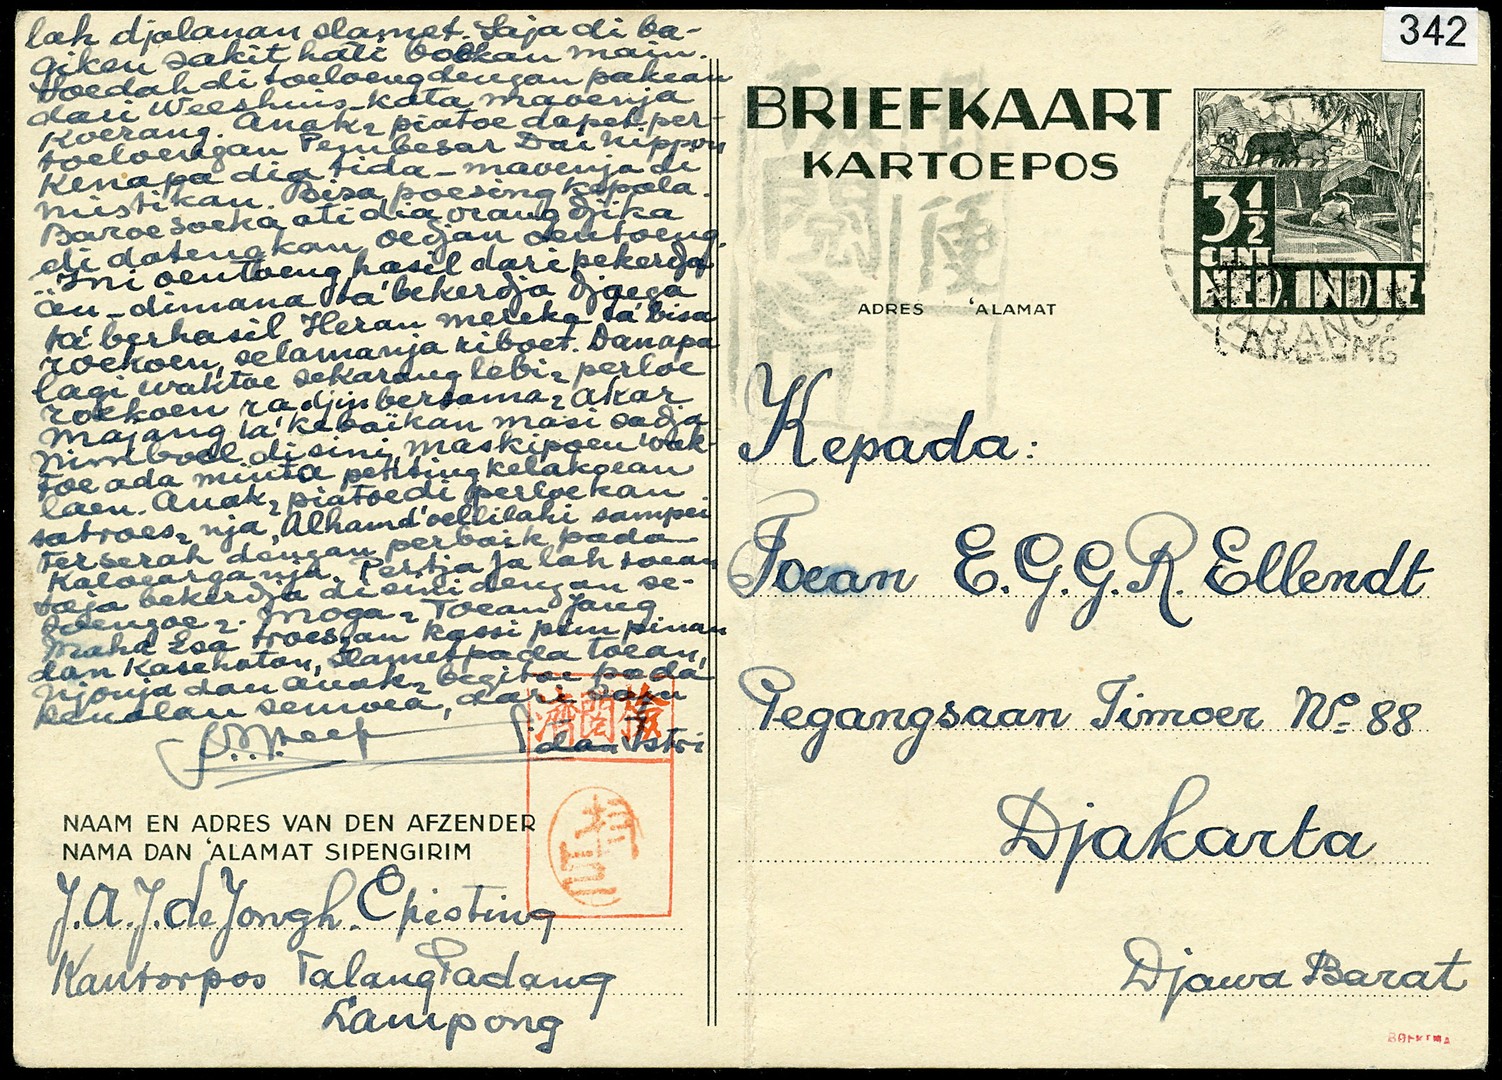 lah djalanan slamet. Saja di ba-
giken sakit hati boekan main.
Soedah di toeloeng dengan pakean
dari Weeshuis - kata mavenja
Koerang. Anak2 piatoe dapet per-
toeloengan Pembesar Dai Nippon
Kenapa dia tida - mavenja di
mistikan. Bisa poesing kepala.
Baroe soeka ati dia orang djika
di datengkan oedjan oentoeng
"Ini oentoeng hasil dari pekerdja
an - dimana ta' bekerdja djoega
ta' berhasil Heran mereka ta' bisa
roekoen, selamanja riboet.
lagi waktoe sekarang lebi2 perloe
roekoen radjin bersama2 akar
majang ta' kebaikan masi sadja
timboel di sini, maskipoen wak-
toe ada minta penting kelakoean
laen. Anak2 piatoe di perloekan
satroes2nja, Alhamd'oellilahi sampei
terserah dengan perbaik pada
Kaloearganja. Pertjaja lah toean
saja bekerdja di sini dengan se-
soenggoe2. Moga2 Toean Jang
Maha Esa troesan kassi pimpinan
dan Kasehatan, slamet pada toean,
Njonja dan anak2 begitoe pada
kenalan semoea, dari
dan Istri
NAAM EN ADRES VAN DEN AFZENDER
NAMA DAN 'ALAMAT SIPENGIRIM
J.A.J. de Jongh. Episting
Kantorpos Talang Padang
Lampong
342
BRIEFKAART
KARTOEPOS
3 1/2
CENT
NED. INDIE
ADRES 'ALAMAT
Kepada:
Toean E.G.G.R. Ellendt
Pegangsaan Timoer No. 88
Djakarta
Djawa Barat
濟閲檢